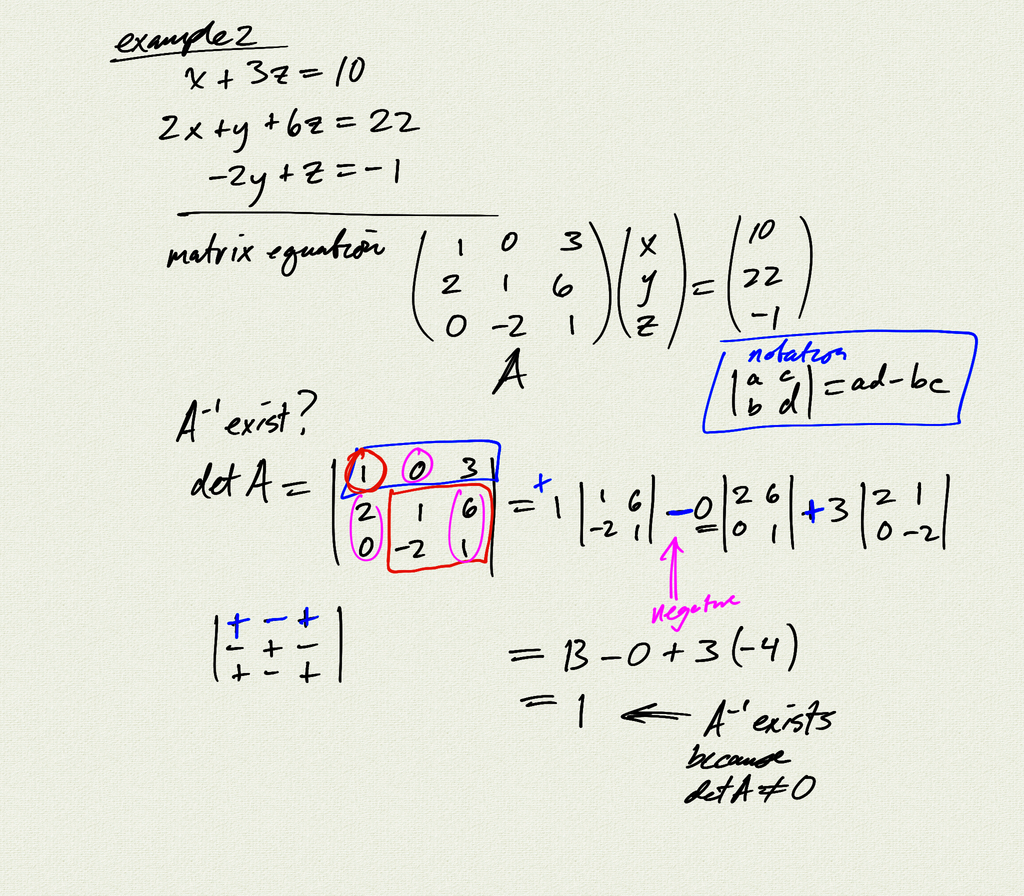 example 2
x + 3z = 10
2x + y + 6z = 22
-2y + z = -1
matrix equation ( 1 0 3 ) ( x ) = ( 10 )
( 2 1 6 ) ( y ) ( 22 )
( 0 -2 1 ) ( z ) ( -1 )
A
notation
| a c | = ad - bc
| b d |
A⁻¹ exist?
det A = | 1 0 3 | = + 1 | 1 6 | - 0 | 2 6 | + 3 | 2 1 |
| 2 1 6 | | -2 1 | | 0 1 | | 0 -2 |
| 0 -2 1 |
negative
| + - + |
| - + - |
| + - + |
= 13 - 0 + 3 (-4)
= 1 ← A⁻¹ exists
because
det A ≠ 0